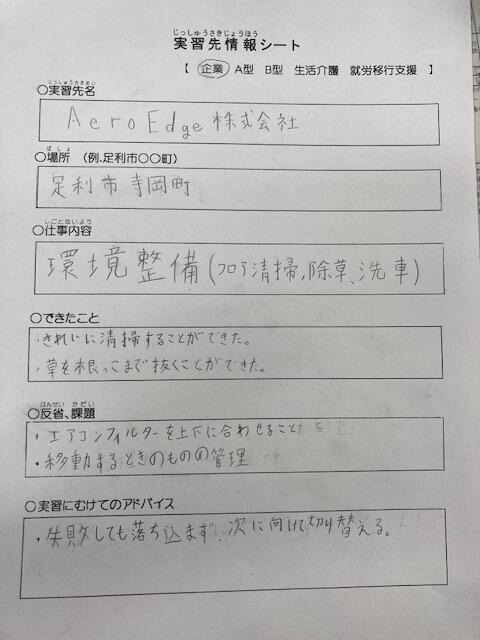 じっしゅうさきじょうほう
実習先情報シート
【 企業 A型 B型 生活介護 就労移行支援 】
じっしゅうさきめい
○実習先名
AeroEdge株式会社
ばしょ
○場所 (例.足利市○○町)
足利市寺岡町
しごとないよう
○仕事内容
環境整備(フロア清掃,除草、洗車)
○できたこと
・きれいに清掃することができた。
・草を根っこまで抜くことができた。
はんせい かだい
○反省、課題
・エアコンフィルターを上下に合わせること
・移動するときのものの管理
○実習にむけてのアドバイス
・失敗しても落ち込まず、次に向けて切り替える。